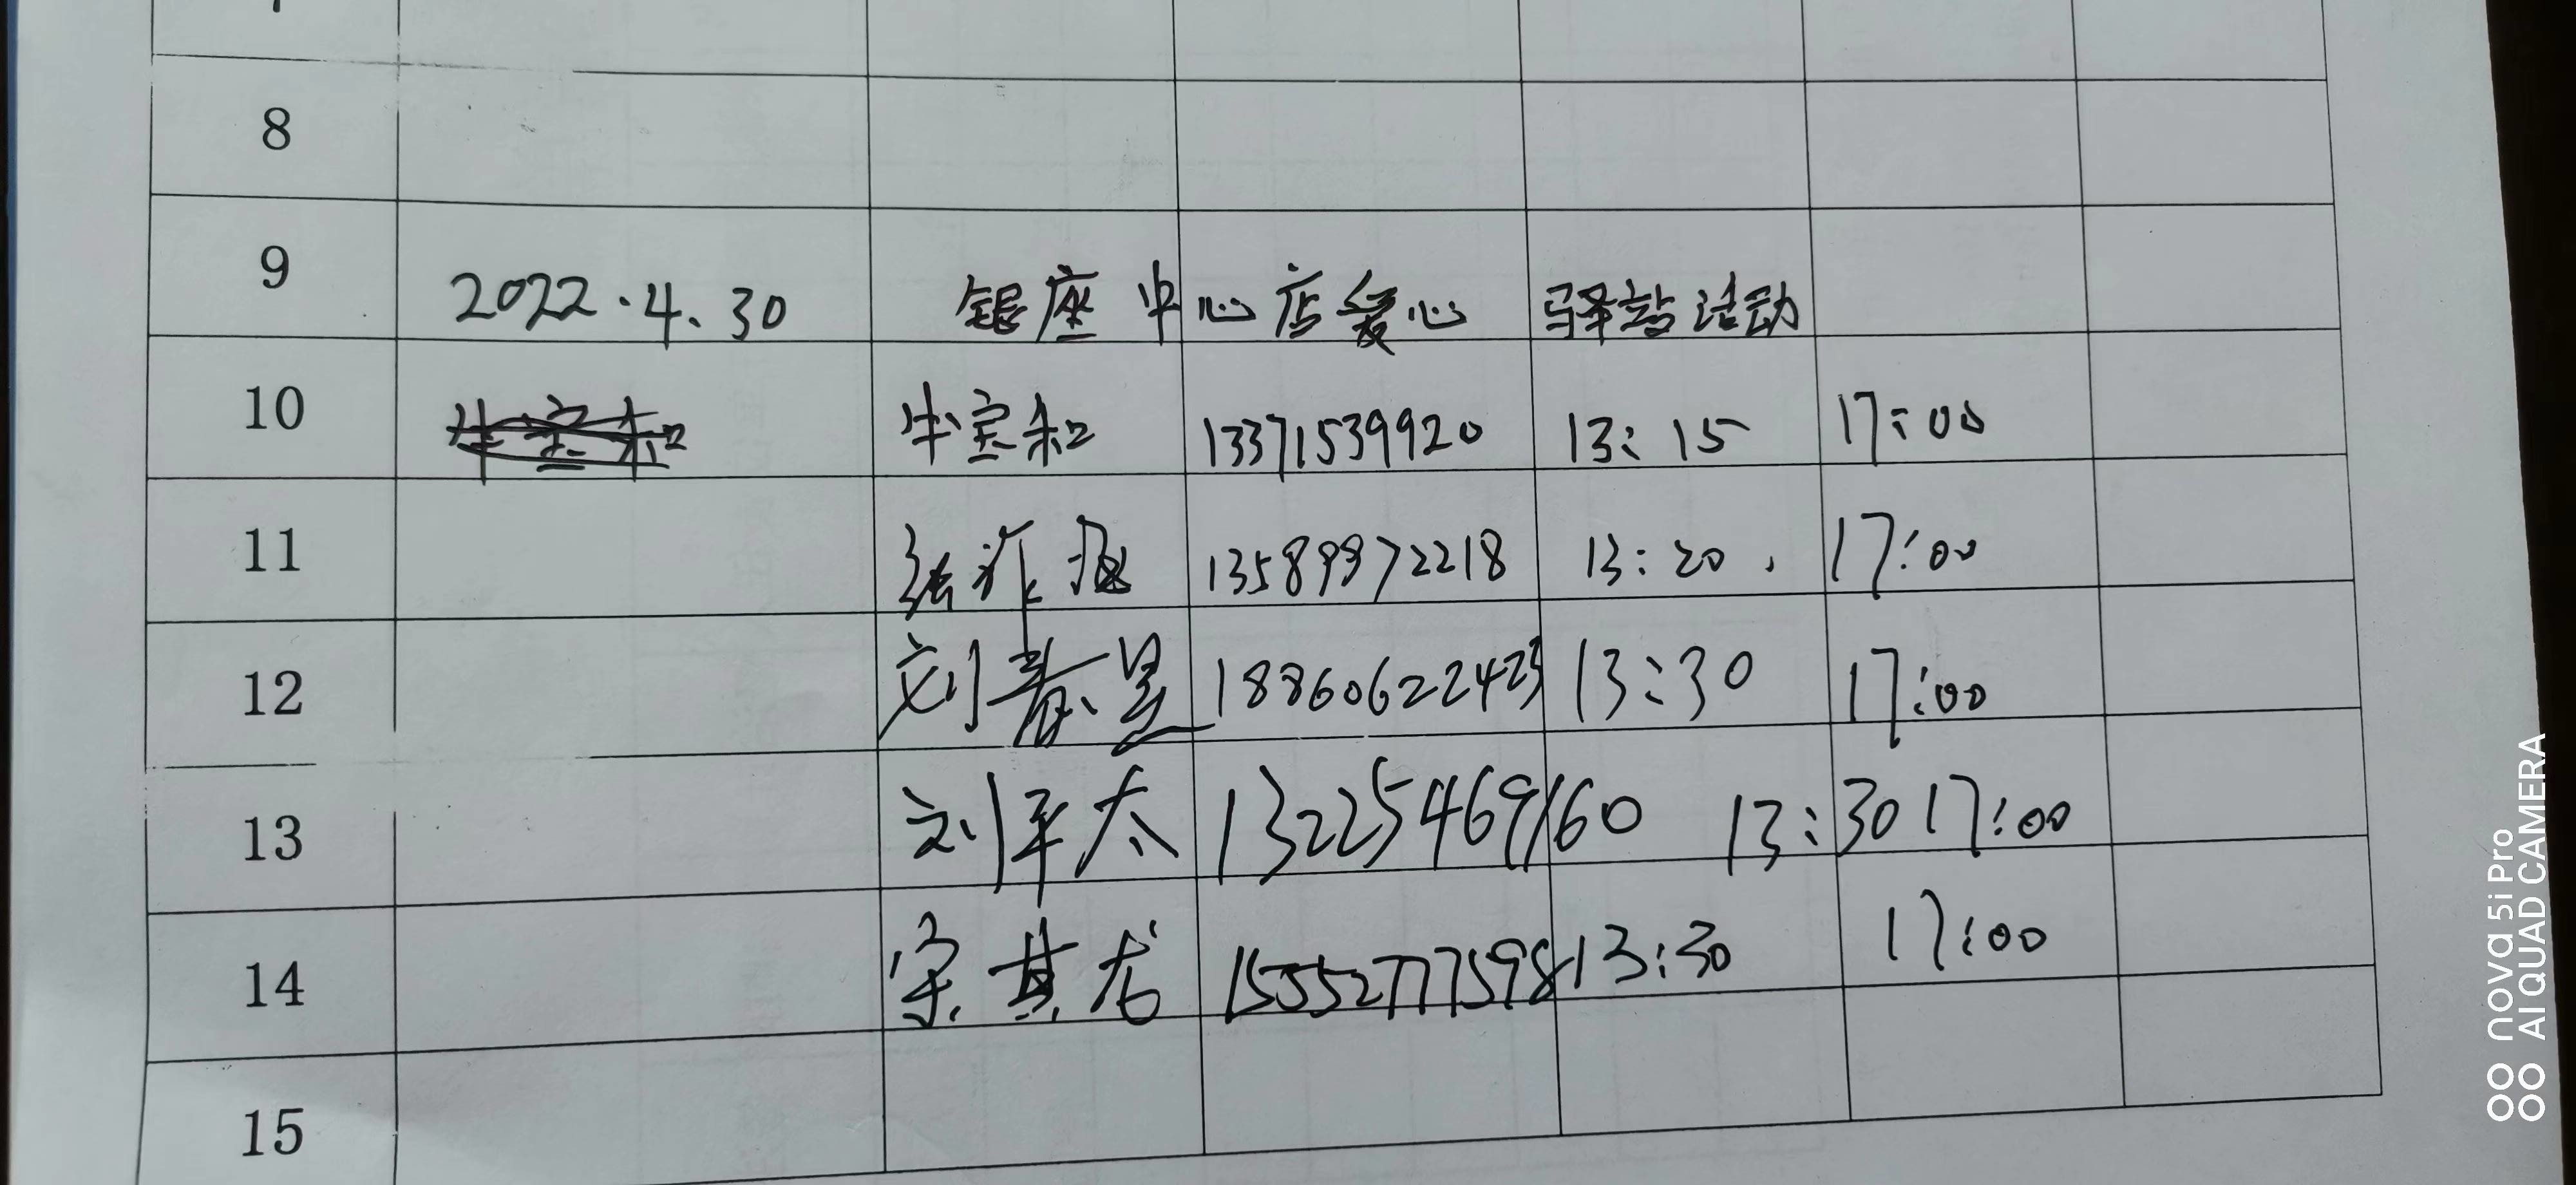 8
9 2022.4.30 银座中心店爱心驿站活动
10 牛宝和 13371539920 13:15 17:00
11 13589972218 13:20. 17:00
12 刘春星 18860622423 13:30 17:00
13 刘军太 13225469160 13:30 17:00
14 宋其龙 15552777598 13:30 17:00
15
nova 5i Pro
AI QUAD CAMERA